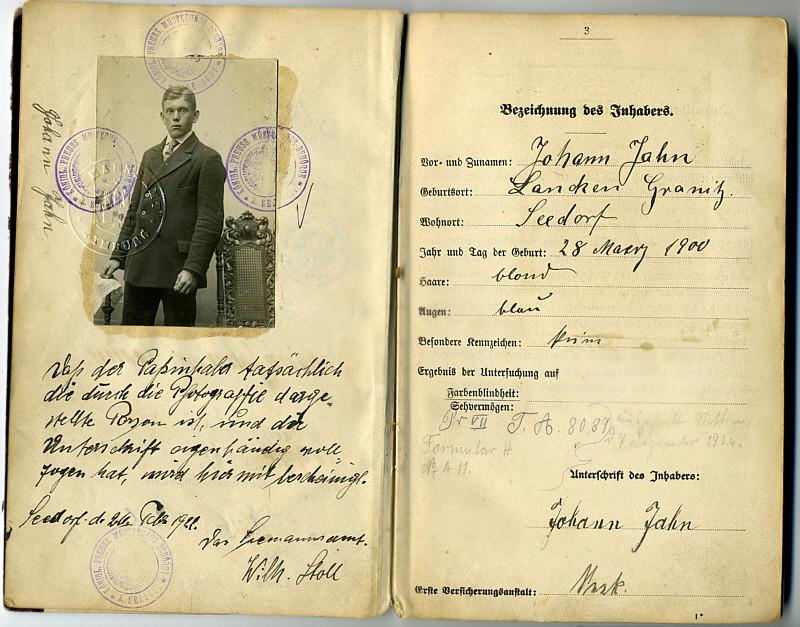 Johann Jahn
KÖNIGL. PREUSS. MUSTERUNGS-BEHÖRDE
Daß der Paßinhaber tatsächlich
die durch die Photografie darge-
stellte Person ist, und die
Unterschrift eigenhändig voll
zogen hat, wird hiermit bescheinigt.
Seedorf. d.
Das Seemannsamt.
Wilh. Stoll
3
Bezeichnung des Inhabers.
Vor- und Zunamen: Johann Jahn
Geburtsort: Lancken Granitz.
Wohnort: Seedorf
Jahr und Tag der Geburt: 28 Maerz 1900
Haare: blond
Augen: blau
Besondere Kennzeichen: keine
Ergebnis der Untersuchung auf
Farbenblindheit:
Sehvermögen:
Pr VII T. A. 8089
Formular H
No A 11.
Unterschrift des Inhabers:
Johann Jahn
Erste Versicherungsanstalt:
1*